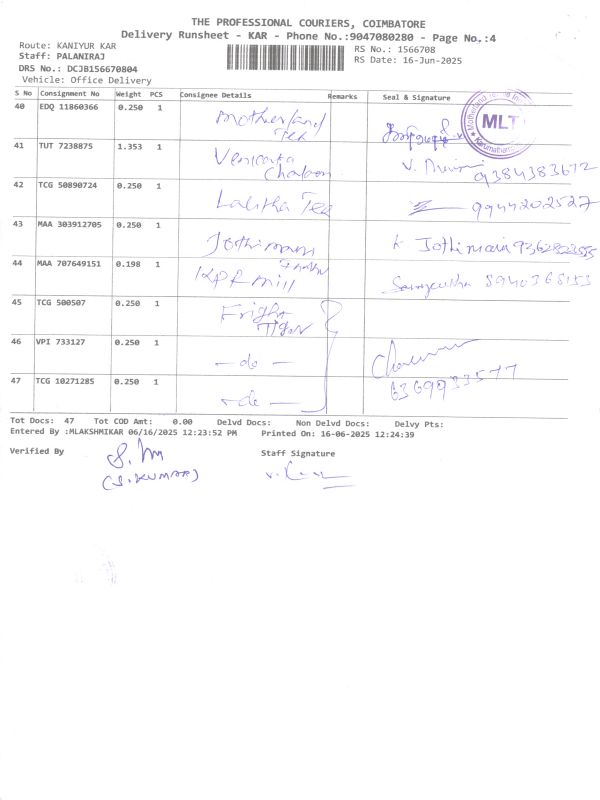 THE PROFESSIONAL COURIERS, COIMBATORE
Delivery Runsheet - KAR - Phone No.:9047080280 - Page No.:4
Route: KANIYUR KAR
RS No.: 1566708
Staff: PALANIRAJ
RS Date: 16-Jun-2025
DRS No.: DCJB156670804
Vehicle: Office Delivery
S No Consignment No Weight PCS Consignee Details Remarks Seal & Signature
40 EDQ 11860366 0.250 1 Motherland Tex MLT
41 TUT 7238875 1.353 1 9384383672
42 TCG 50890724 0.250 1 Lalitha Tex 9944202527
43 MAA 303912705 0.250 1 Jothimani Jothimani
44 MAA 707649151 0.198 1 KPR mill
45 TCG 500507 0.250 1 Fright Tiger
46 VPI 733127 0.250 1 - do -
47 TCG 10271285 0.250 1 - do - 6369933577
Tot Docs: 47 Tot COD Amt: 0.00 Delvd Docs: Non Delvd Docs: Delvy Pts:
Entered By :MLAKSHMIKAR 06/16/2025 12:23:52 PM Printed On: 16-06-2025 12:24:39
Verified By Staff Signature
(S. KUMAR)